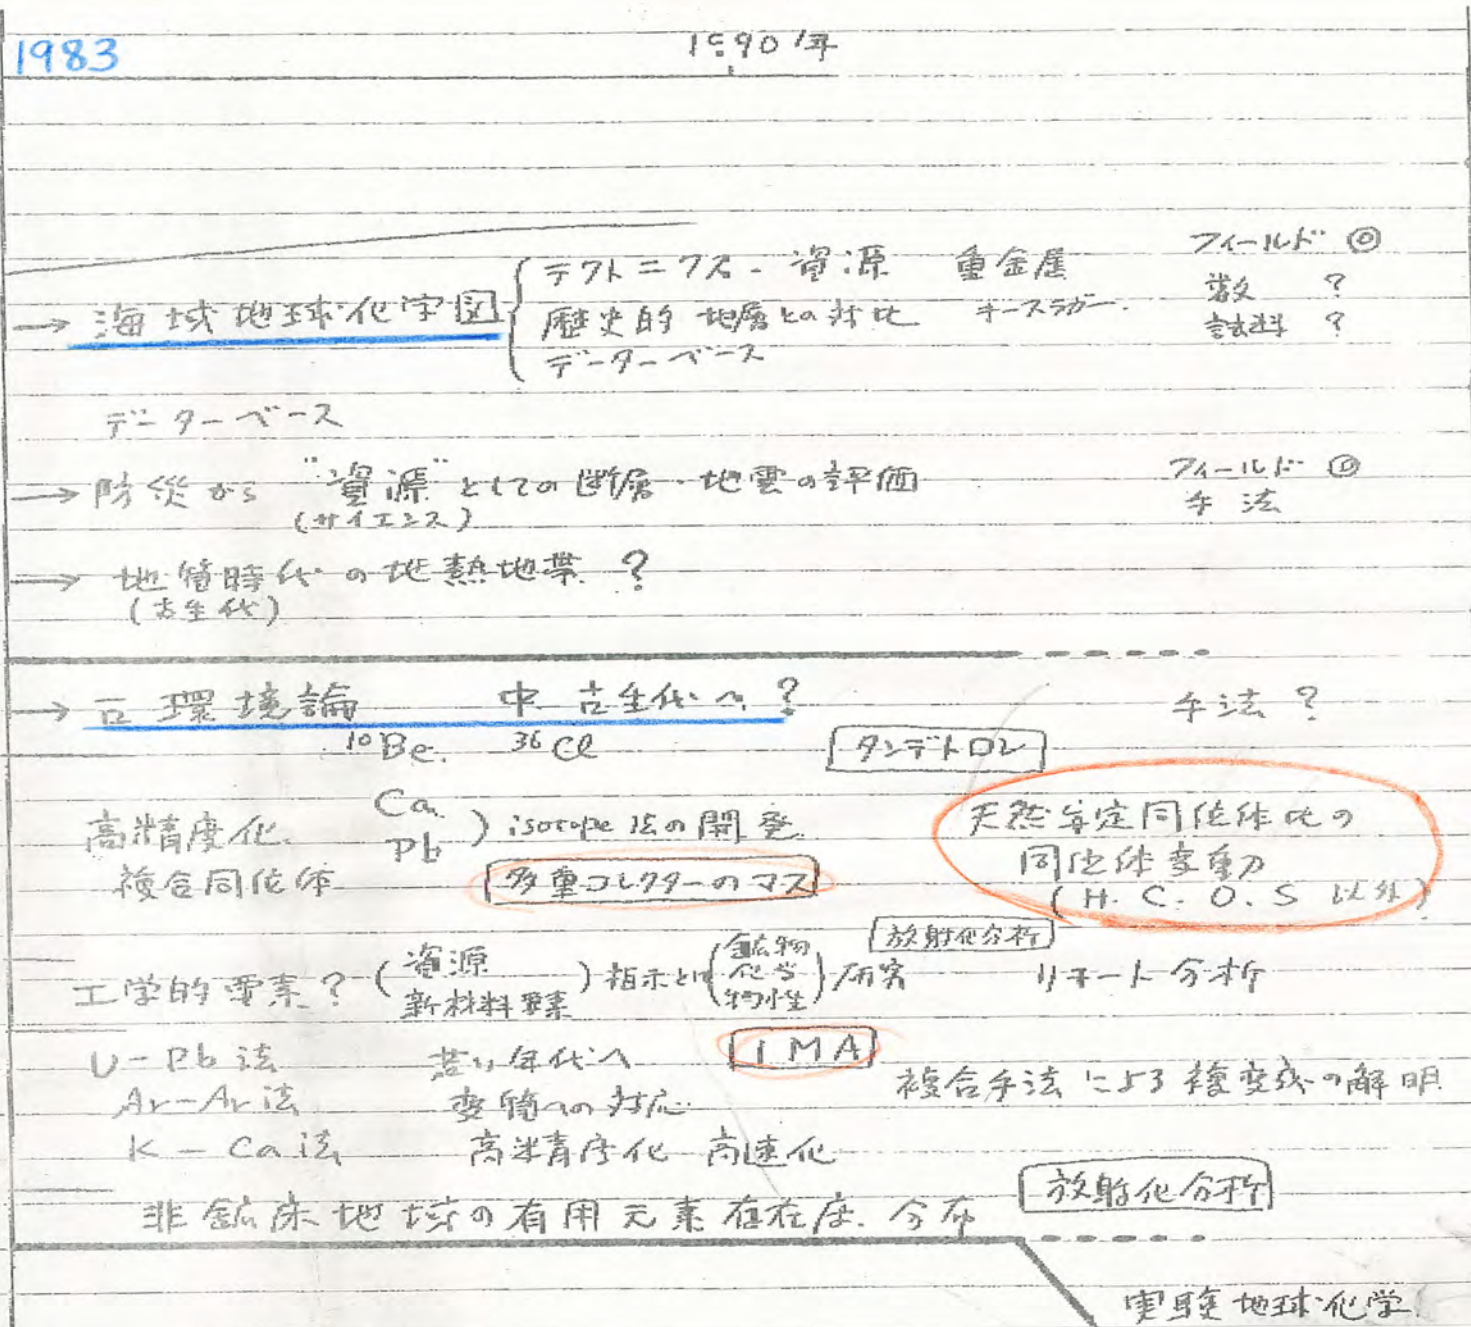 1983
1990年
→ 海域地球化学図
テクトニクス - 資源 重金属
歴史的 地層との対比 キースラガー
データーベース
フィールド ◎
数 ?
試料 ?
データーベース
→ 防災から "資源" としての断層・地震の評価
(サイエンス)
フィールド ◎
手法
→ 地質時代の地熱地帯 ?
(古生代)
→ 古環境論 中 古生代へ ?
手法 ?
10Be. 36Cl
タンデトロン
高精度化
複合同位体
Ca
Pb
isotope 法の開発
多重コレクターのマス
天然安定同位体比の
同位体変動
(H. C. O. S 以外)
工学的要素 ? (資源
新材料要素) 指示とし
鉱物
化学
物性
研究
放射化分析
リモート分析
U-Pb法 若い年代へ
IMA
Ar-Ar法 変質への対応
複合手法による複変成の解明
K-Ca法 高精度化 高速化
非鉱床地域の有用元素存在度. 分布
放射化分析
実験地球化学